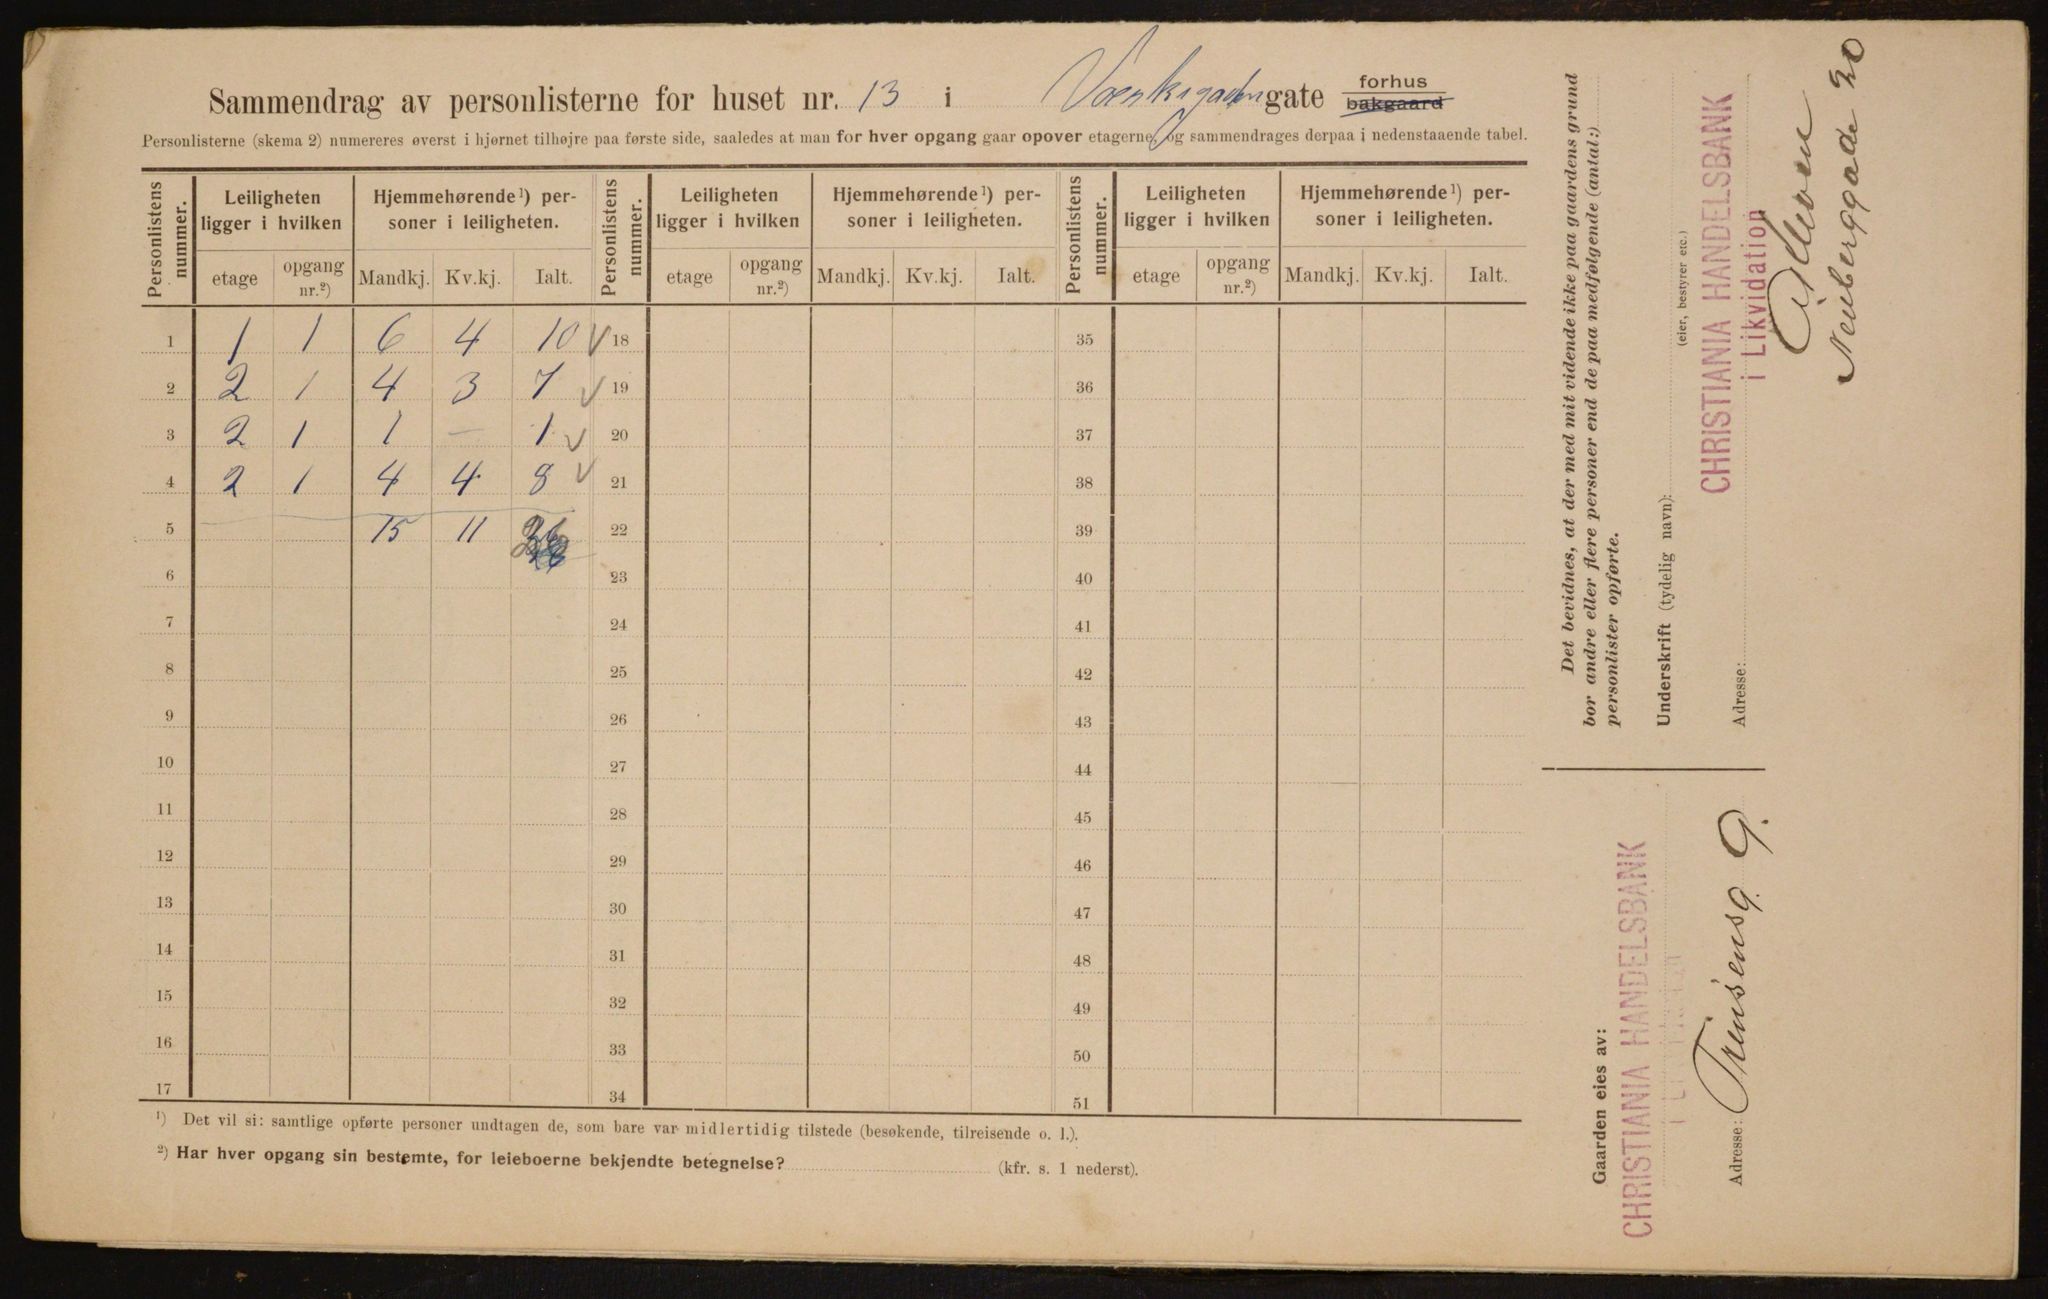 Sammendrag av personlisterne for huset nr. 13 i gate forhus bakgaard
Personlisterne (skema 2) numereres øverst i hjørnet tilhøjre paa første side, saaledes at man for hver opgang gaar opover etagerne, og sammendrages derpaa i nedenstaaende tabel.
Personlistens nummer. Leiligheten ligger i hvilken Hjemmehørende ¹) personer i leiligheten. Personlistens nummer. Leiligheten ligger i hvilken Hjemmehørende ¹) personer i leiligheten. Personlistens nummer. Leiligheten ligger i hvilken Hjemmehørende ¹) personer i leiligheten.
etage opgang nr.²) Mandkj. Kv.kj. Ialt. etage opgang nr.²) Mandkj. Kv.kj. Ialt. etage opgang nr.²) Mandkj. Kv.kj. Ialt.
1 1 1 6 4 10 ✓ 18 35
2 2 1 4 3 7 ✓ 19 36
3 2 1 1 — 1 ✓ 20 37
4 2 1 4 4 8 ✓ 21 38
5 15 11 26 22 39
6 23 40
7 24 41
8 25 42
9 26 43
10 27 44
11 28 45
12 29 46
13 30 47
14 31 48
15 32 49
16 33 50
17 34 51
¹) Det vil si: samtlige opførte personer undtagen de, som bare var midlertidig tilstede (besøkende, tilreisende o. l.).
²) Har hver opgang sin bestemte, for leieboerne bekjendte betegnelse? (kfr. s. 1 nederst).
Det bevidnes, at der med mit vidende ikke paa gaardens grund
bor andre eller flere personer end de paa medfølgende (antal:)
personlister opførte.
Underskrift (tydelig navn):
(eier, bestyrer etc.)
CHRISTIANIA HANDELSBANK
i Likvidation
Adresse:
Neuberggade 20
Gaarden eies av:
CHRISTIANIA HANDELSBANK
Adresse: 9.